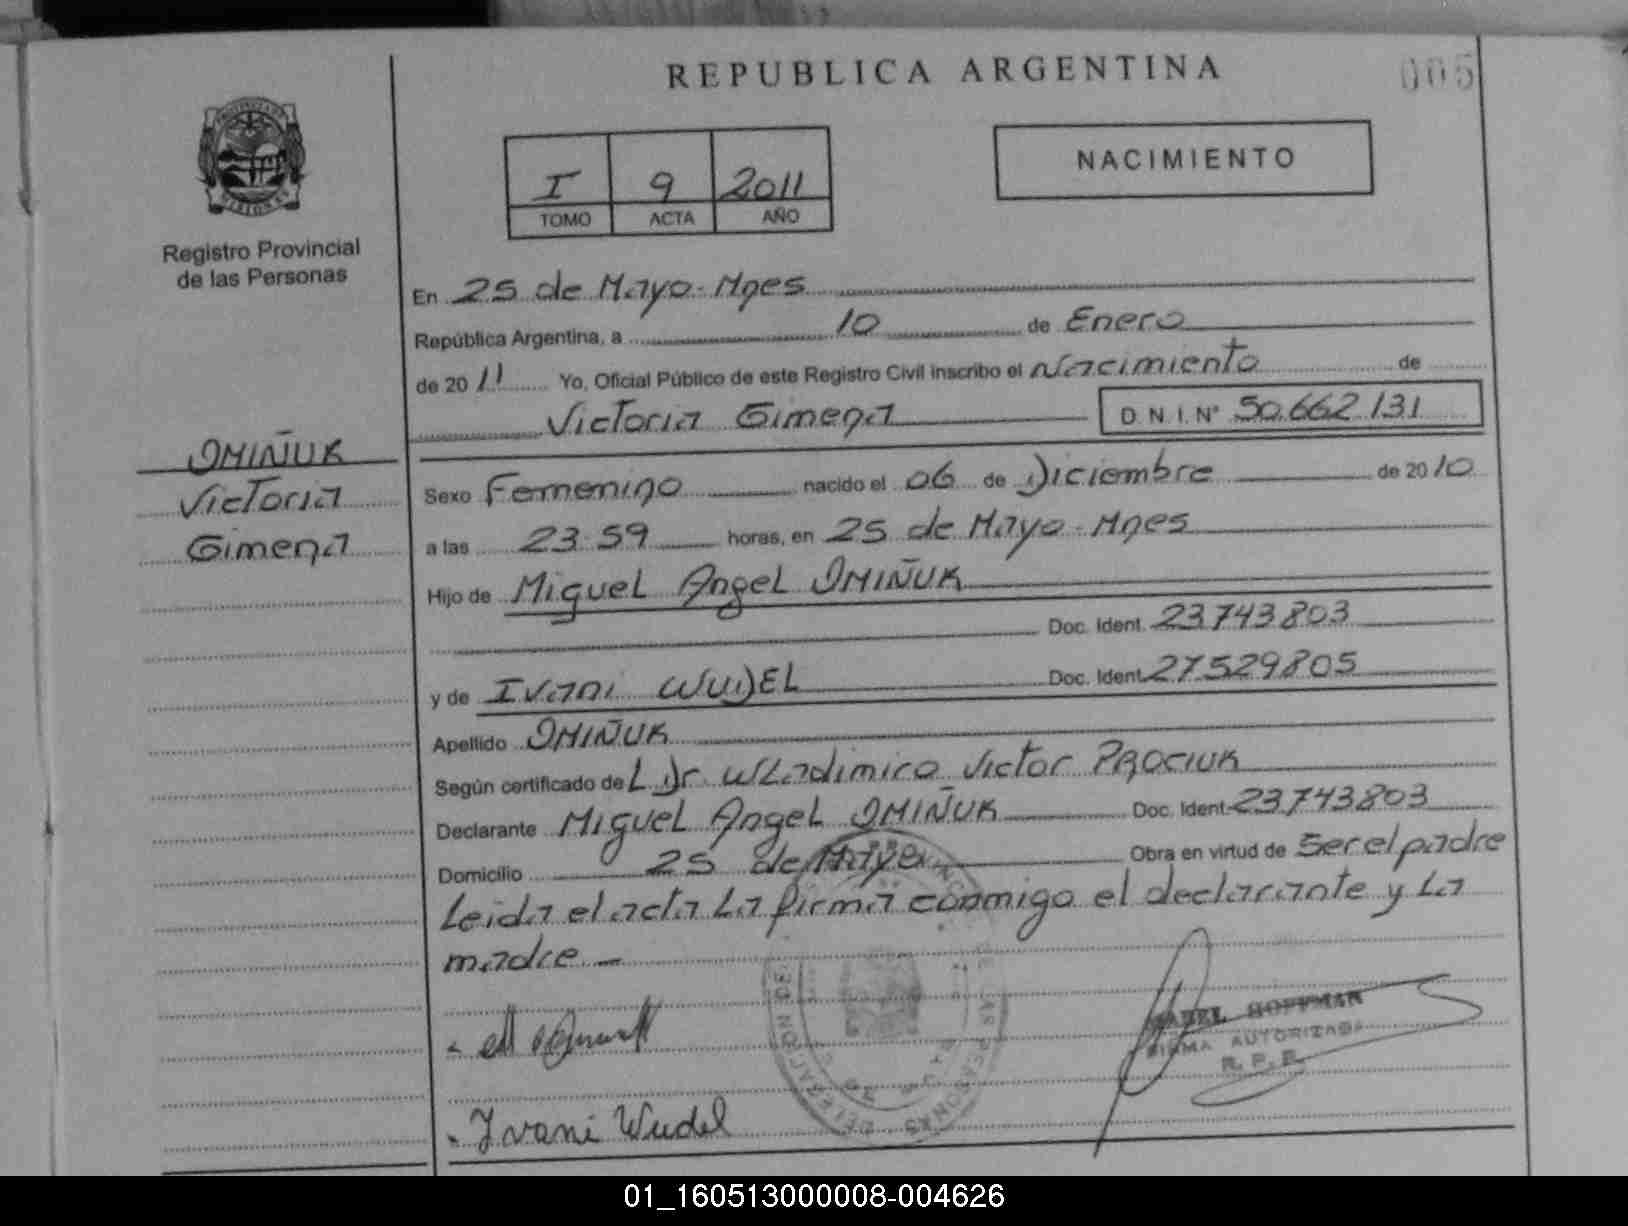 REPUBLICA ARGENTINA
005
PROVINCIA DE
MISIONES
Registro Provincial
de las Personas
I 9 2011
TOMO ACTA AÑO
NACIMIENTO
En 25 de Mayo-Mnes
República Argentina, a 10 de Enero
de 2011 Yo, Oficial Público de este Registro Civil inscribo el Nacimiento de
Victoria Gimena D.N.I.N° 50.662.131
OMIÑUK
Victoria
Gimena
Sexo Femenino nacido el 06 de Diciembre de 2010
a las 23:59 horas, en 25 de Mayo-Mnes
Hijo de Miguel Angel OMIÑUK
Doc. Ident. 23.743.803
y de Ivani WUDEL Doc. Ident. 27529805
Apellido OMIÑUK
Según certificado del Dr. Wladimiro Victor PROCIUK
Declarante Miguel Angel OMIÑUK Doc. Ident. 23.743.803
Domicilio 25 de Mayo Obra en virtud de Ser el padre
Leida el acta La firma conmigo el declarante y La
madre.-
HOFFMAN
FIRMA AUTORIZADA
R. P. P.
Ivani Wudel
01_160513000008-004626